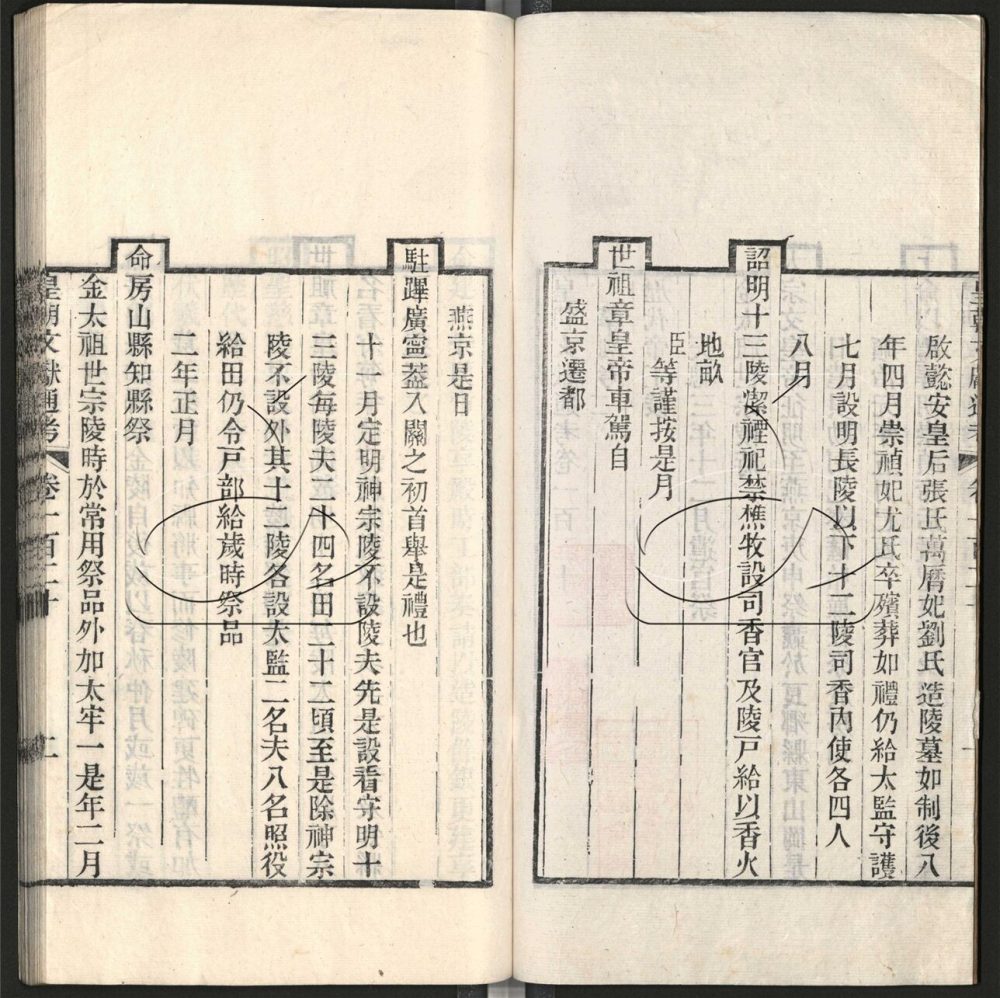 啟懿安皇后張氏萬曆妃劉氏造陵墓如制後八
年四月崇禎妃尤氏卒殯葬如禮仍給太監守護
七月設明長陵以下十二陵司香內使各四人
八月
詔明十三陵潔禋祀禁樵牧設司香官及陵戶給以香火
地畝
臣等謹按是月
世祖章皇帝車駕自
盛京遷都
燕京是日
駐蹕廣寗葢入關之初首舉是禮也
十一月定明神宗陵不設陵夫先是設看守明十
三陵每陵夫二十四名田二十二頃至是除神宗
陵不設外其十二陵各設太監二名夫八名照役
給田仍令戶部給歲時祭品
二年正月
命房山縣知縣祭
金太祖世宗陵時於常用祭品外加太牢一是年二月
皇朝文獻通考 卷一百二十